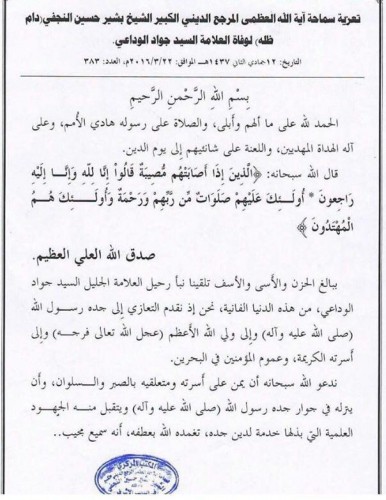 تعزية سماحة آية الله العظمى المرجع الديني الكبير الشيخ بشير حسين النجفي(دام
ظله) لوفاة العلامة السيد جواد الوداعي.
التاريخ: ١٢جمادي الثاني ١٤٣٧هـ، الموافق: ٢٠١٦/٣/٢٢م، العدد: ٣٨٣
بِسْمِ اللهِ الرَّحْمنِ الرَّحِيمِ
الحمد لله على ما ألهم وأبلى، والصلاة على رسوله هادي الأمم، وعلى
آله الهداة المهديين، واللعنة على شانئيهم إلى يوم الدين.
قال الله سبحانه: ﴿الَّذِينَ إِذَا أَصَابَتْهُم مُصِيبَةٌ قَالُواْ إِنَّا لِلّهِ وَإِنَّا إِلَيْهِ
رَاجِعونَ * أُولَـئِكَ عَلَيْهِمْ صَلَوَاتٌ مِّن رَّبِّهِمْ وَرَحْمَةٌ وَأُولَـئِكَ هُمُ
الْمُهْتَدُونَ﴾
صدق الله العلي العظيم.
ببالغ الحزن والأسى والأسف تلقينا نبأ رحيل العلامة الجليل السيد جواد
الوداعي، من هذه الدنيا الفانية، نحن إذ نقدم التعازي إلى جده رسول الله
(صلى الله عليه وآله) وإلى ولي الله الأعظم (عجل الله تعالى فرجه) وإلى
أسرته الكريمة، وعموم المؤمنين في البحرين.
ندعو الله سبحانه أن يمن على أسرته ومتعلقيه بالصبر والسلوان، وأن
ينزله في جوار جده رسول الله (صلى الله عليه وآله) ويتقبل منه الجهود
العلمية التي بذلها خدمة لدين جده، تغمده الله بعطفه، أنه سميع مجيب..